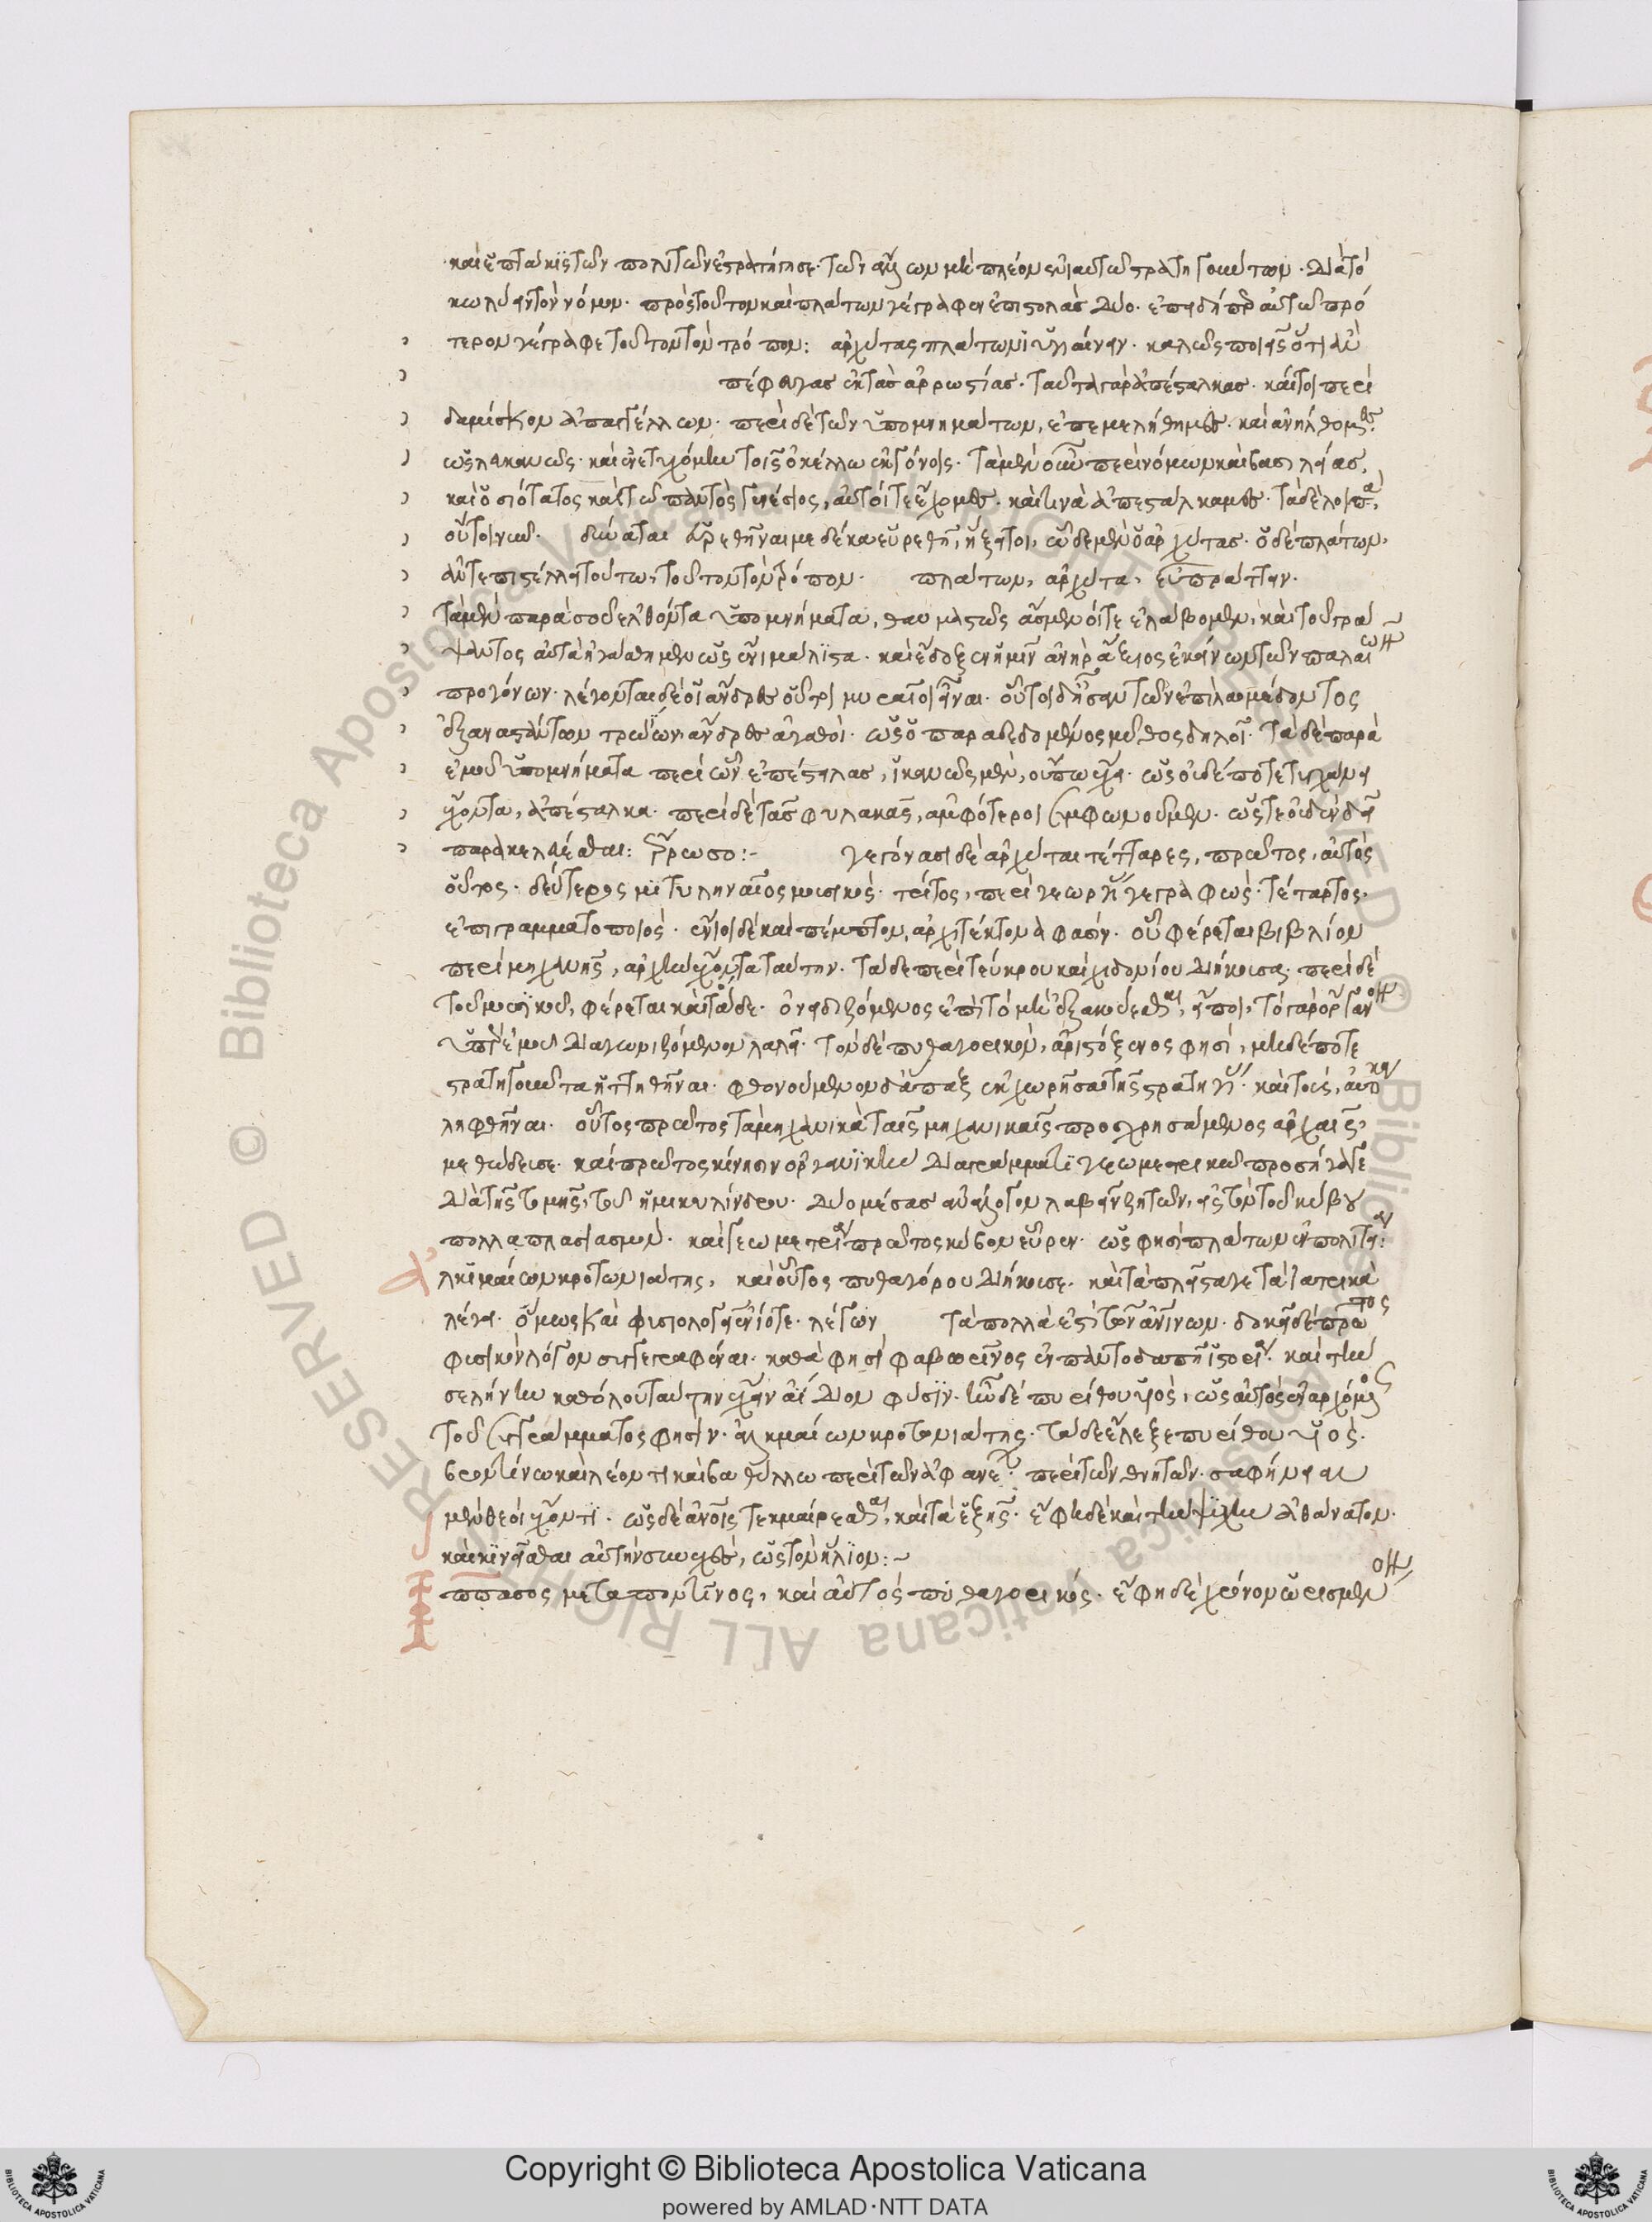 καὶ ἑπτάκις τῶν πολιτῶν ἐστρατήγησε· τῶν ἄλλων μὴ πλέον ἐνιαυτοῦ στρατηγούντων· διὰ τὸ
κωλύειν τὸν νόμον· πρὸς τοῦτον καὶ πλάτων γέγραφεν ἐπιστολὰς δύο· ἐπειδήπερ αὐτῶ πρό
τερον γέγραφε τοῦτον τὸν τρόπον: ἀρχύτας πλάτωνι ὑγιαίνειν. καλῶς ποιεῖς ὅτι
πέφευγας ἐκ τᾶς ἀρρωστίας· ταῦτα γὰρ ἀπέσταλκας· καίτοι περὶ
δαμίσκον ἀπαγγέλλων· περὶ δὲ τῶν ὑπομνημάτων, ἐπεμελήθημες· καὶ ἀνήλθομες
ὡς λευκανῶς· καὶ ἐνετύχομεν τοῖς ὀκέλλω ἐκγόνοις· τὰ μὲν οὖν περὶ νόμων καὶ βασιληίας,
καὶ ὁσιότατος καὶ τῶ παντὸς γενέσιος, αὐτοί τε ἔχομες· καὶ τινὰ ἀπεστάλκαμες· τὰ δὲ λοιπὰ,
οὔτοι νῦν· δύναται εὑρεθῆναι με δέκα εὑρεθῆ, ἥξει τοι, ὧδε μὲν ὁ ἀρχύτας· ὁ δὲ πλάτων,
ἀντεπιστέλλει τούτω, τοῦτον τὸν τρόπον· πλάτων, ἀρχύτα, εὖ πράττειν·
τὰ μὲν παρὰ σοῦ ἐλθόντα ὑπομνήματα, θαυμαστῶς ἄσμενοί τε ἐλάβομεν, καὶ τοῦ γρά
ψαντος αὐτὰ ἠγάσθημεν ὡς ἔνι μάλιστα· καὶ ἔδοξεν ἡμῖν ἀνὴρ ἄξιος ἐκείνων τῶν παλαι
προγόνων· λέγονται δὲ οἱ ἄνδρες οὗτοι μυραῖοι εἶναι· οὗτοι δ' ἦσαν τῶν ἐπὶ λαομέδοντος
ἐξαναστάντων τρώων, ἄνδρες ἀγαθοὶ· ὡς ὁ παραδεδομένος μῦθος δηλοῖ· τὰ δὲ παρὰ
ἐμοῦ ὑπομνήματα περὶ ὧν ἐπέστειλας, ἱκανῶς μὲν, οὔπω ἔχει· ὡς οὐδέποτε τυγχάνει
ἔχοντα, ἀπέσταλκα· περὶ δὲ τᾶς φυλακᾶς, ἀμφότεροι συμφωνοῦμεν· ὥστε οὐδὲν δεῖ
παρακελεύεσθαι: ἔρρωσο:- γεγόνασι δὲ ἀρχύται τέτταρες, πρῶτος, αὐτὸς
οὗτος· δεύτερος μιτυληναῖος μουσικός· τρίτος, περὶ γεωργίας γεγραφὼς· τέταρτος·
ἐπιγραμματοποιός· ἔνιοι δὲ καὶ πέμπτον, ἀρχιτέκτονά φασίν· οὗ φέρεται βιβλίον
περὶ μηχανῆς, ἀρχὴν ἔχοντα ταύτην· τάδε περὶ τεύκρου καρχηδονίου διήκουσα· περὶ δὲ
τοῦ μουσικοῦ, φέρεται καὶ τόδε· ὀνειδιζόμενος ἐπὶ τὸ μὴ ἐξακούεσθαι, εἴποι, τὸ γὰρ ὄργανον
ὑπὲρ ἐμοῦ διαγωνιζόμενον λαλεῖ· τὸν δὲ πυθαγορικὸν, ἀριστόξενος φησὶ, μηδέποτε
στρατηγοῦντα ἡττηθῆναι· φθονούμενον δ' ἅπαξ ἐκχωρῆσαι τῆς στρατηγίας· καὶ τοὺς, αὐτίκα
ληφθῆναι· οὗτος πρῶτος τὰ μηχανικὰ ταῖς μηχανικαῖς προσχρησάμενος ἀρχαῖς,
μεθώδευσε· καὶ πρῶτος κίνησιν ὀργανικὴν διαγράμματι γεωμετρικῶ προσήγαγε
διὰ τῆς τομῆς, τοῦ ἡμικυλίνδρου· δύο μέσας ἀνάλογον λαβεῖν ζητῶν, εἰς τὸν τοῦ κύβου
πολλαπλασιασμόν· καὶ γεωμετρίαν πρῶτος κύβον εὗρεν· ὡς φησὶ πλάτων ἐν πολιτείᾳ:
λκμαίων κροτωνιάτης, καὶ οὗτος πυθαγόρου διήκουσε· καὶ τὰ πλεῖστά γε τὰ ἰατρικὰ
λέγει· ὅμως καὶ φυσιολογεῖ ἐνίοτε· λέγων τὰ πολλά ἐστι τῶν ἀνθρωπίνων· δοκεῖ δὲ πρῶτος
φυσικὸν λόγον συγγεγραφέναι· καθά φησὶ φαβωρῖνος ἐν παντοδαπῆ ἱστορίᾳ· καὶ τὴν
σελήνην καθόλου ταύτην ἔχειν ἀίδιον φύσιν· ἦν δὲ πυρίθου υἱὸς, ὡς αὐτὸς ἐναρχόμενος
τοῦ συγγράμματος φησίν· ἀλκμαίων κροτωνιάτης· τάδε ἔλεξε πυρίθου υἱός·
βροντίνω καὶ λέοντι καὶ βαθύλλω περὶ τῶν ἀφανέων· περὶ τῶν θνητῶν· σαφήνειαν
μὲν θεοὶ ἔχοντι· ὡς δὲ ἀνοῖς τεκμαίρεσθαι, καὶ τὰ ἑξῆς· ἔφη δὲ καὶ τὴν ψυχὴν ἀθάνατον·
καὶ κινεῖσθαι αὐτὴν συνεχὲς, ὡς τὸν ἥλιον:~
ππασος μεταποντῖνος, καὶ αὐτὸς πυθαγορικός· ἔφη δὲ χρόνον ὡρισμένον
Copyright © Biblioteca Apostolica Vaticana
powered by AMLAD·NTT DATA